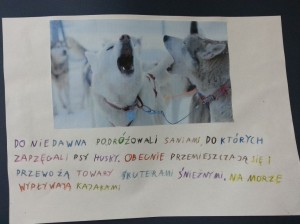 DO NIEDAWNA PODRÓŻOWALI SANIAMI, DO KTÓRYCH
ZAPZĘGALI PSY HUSKY. OBECNIE PRZEMIESZCZAJĄ SIĘ I
PRZEWOŻĄ TOWARY SKUTERAMI ŚNIEŻNYMI. NA MORZE
WYPŁYWAJĄ KAJAKAMI